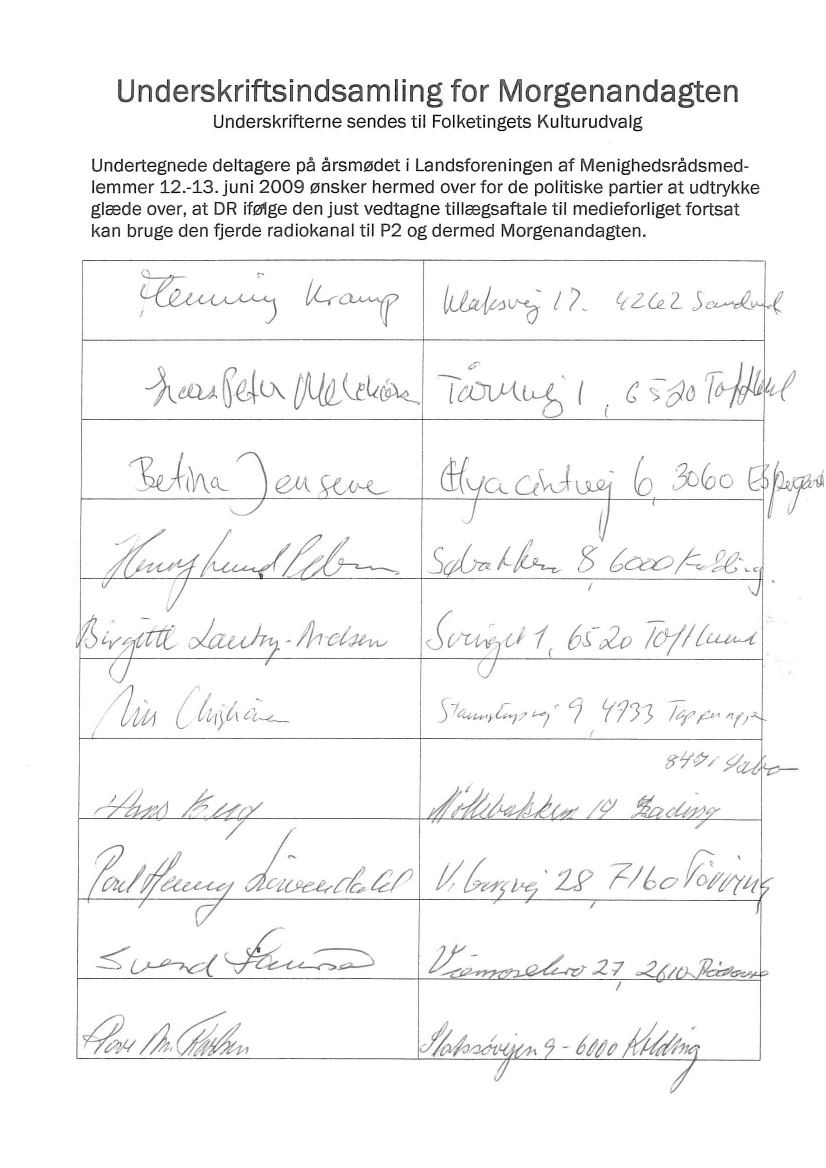 Underskriftsindsamling for Morgenandagten
Underskrifterne sendes til Folketingets Kulturudvalg
Undertegnede deltagere på årsmødet i Landsforeningen af Menighedsrådsmed-
lemmer 12.-13. juni 2009 ønsker hermed over for de politiske partier at udtrykke
glæde over, at DR ifølge den just vedtagne tillægsaftale til medieforliget fortsat
kan bruge den fjerde radiokanal til P2 og dermed Morgenandagten.
Henning Kramp Klaksvej 17. 4262 Sandved
Lars Peter Melchiorsen Tårnvej 1, 6520 Toftlund
Betina Jensen Hyacintvej 6, 3060 Espergærde
Henny Lund Søbakken 8, 6000 Kolding.
Birgitte Lautrup-Nielsen Svinget 1, 6520 Toftlund
Christiansen 9, 4733 Tappernøje
8471 Sabro
Hans Møllebakken 19
Poul Henning Løwendahl Viborgvej 28, 7160 Tørring
Svend 27, 2610 Rødovre
9 - 6000 Kolding